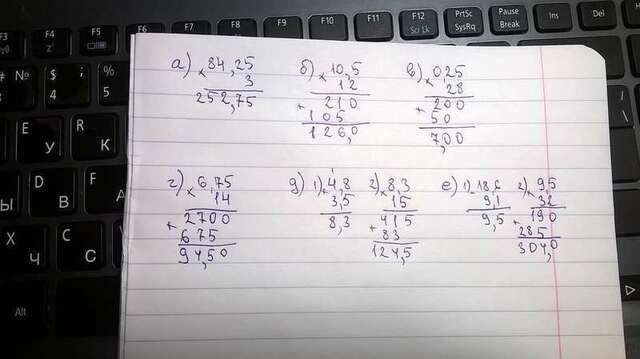 F3
F4
z^z
F5
F6
F7
F8
F9
F10
F11
F12
Scr Lk
PrtSc
SysRq
Pause
Break
Ins
Del
# №
$ ;
4
%
5
E
У
R
К
D
В
F
А
Ы
С
Ч
Alt
а) × 84,25
3
252,75
б) × 10,5
12
+ 210
105
126,0
в) × 0,25
28
+ 200
50
7,00
г) × 6,75
14
+ 2700
675
94,50
д) 1) 4,8
3,5
8,3
2) × 8,3
15
+ 415
83
124,5
е) 1) - 18,6
9,1
9,5
2) × 9,5
32
+ 190
285
304,0